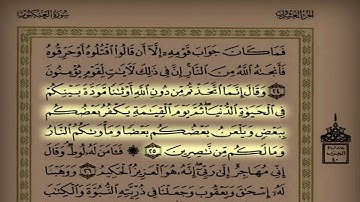 الجزء العشرون سورة العنكبوت
فَمَا كَانَ جَوَابَ قَوْمِهِ إِلَّا أَن قَالُوا اقْتُلُوهُ أَوْ حَرِّقُوهُ
فَأَنجَىٰهُ اللَّهُ مِنَ النَّارِ إِنَّ فِي ذَٰلِكَ لَآيَاتٍ لِّقَوْمٍ يُؤْمِنُونَ
٢٤ وَقَالَ إِنَّمَا اتَّخَذْتُم مِّن دُونِ اللَّهِ أَوْثَٰنًا مَّوَدَّةَ بَيْنِكُمْ
فِي الْحَيَوٰةِ الدُّنْيَا ثُمَّ يَوْمَ الْقِيَٰمَةِ يَكْفُرُ بَعْضُكُم
بِبَعْضٍ وَيَلْعَنُ بَعْضُكُم بَعْضًا وَمَأْوَىٰكُمُ النَّارُ
وَمَا لَكُم مِّن نَّٰصِرِينَ ٢٥ فَـَٔامَنَ لَهُ لُوطٌ وَقَالَ
إِنِّي مُهَاجِرٌ إِلَىٰ رَبِّي إِنَّهُ هُوَ الْعَزِيزُ الْحَكِيمُ ٢٦ وَوَهَبْنَا
لَهُ إِسْحَٰقَ وَيَعْقُوبَ وَجَعَلْنَا فِي ذُرِّيَّتِهِ النُّبُوَّةَ وَالْكِتَٰبَ